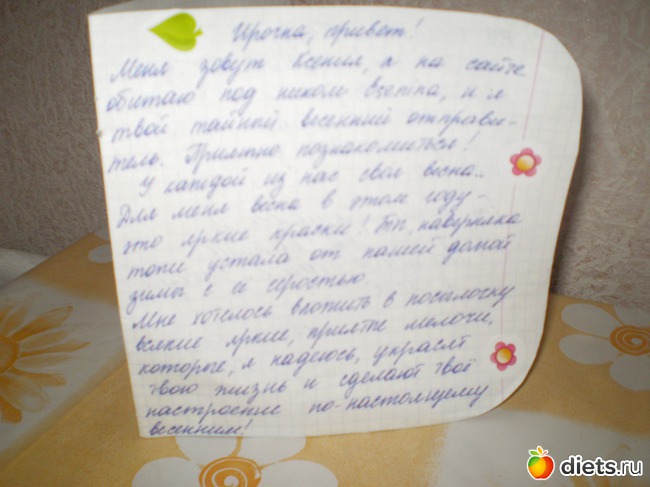 Ирочка, привет!
Меня зовут Ксения, а на сайте
обитаю под ником, и я
твой тайной весенний отправи-
тель. Приятно познакомиться!
У каждой из нас своя весна..
Для меня весна в этом году -
это яркие краски! Ты, наверняка
тоже устала от нашей долгой
зимы с её серостью.
Мне хотелось вложить в посылочку
всякие яркие, приятные мелочи,
которые, я надеюсь, украсят
твою жизнь и сделают твоё
настроение по-настоящему
весенним!
diets.ru